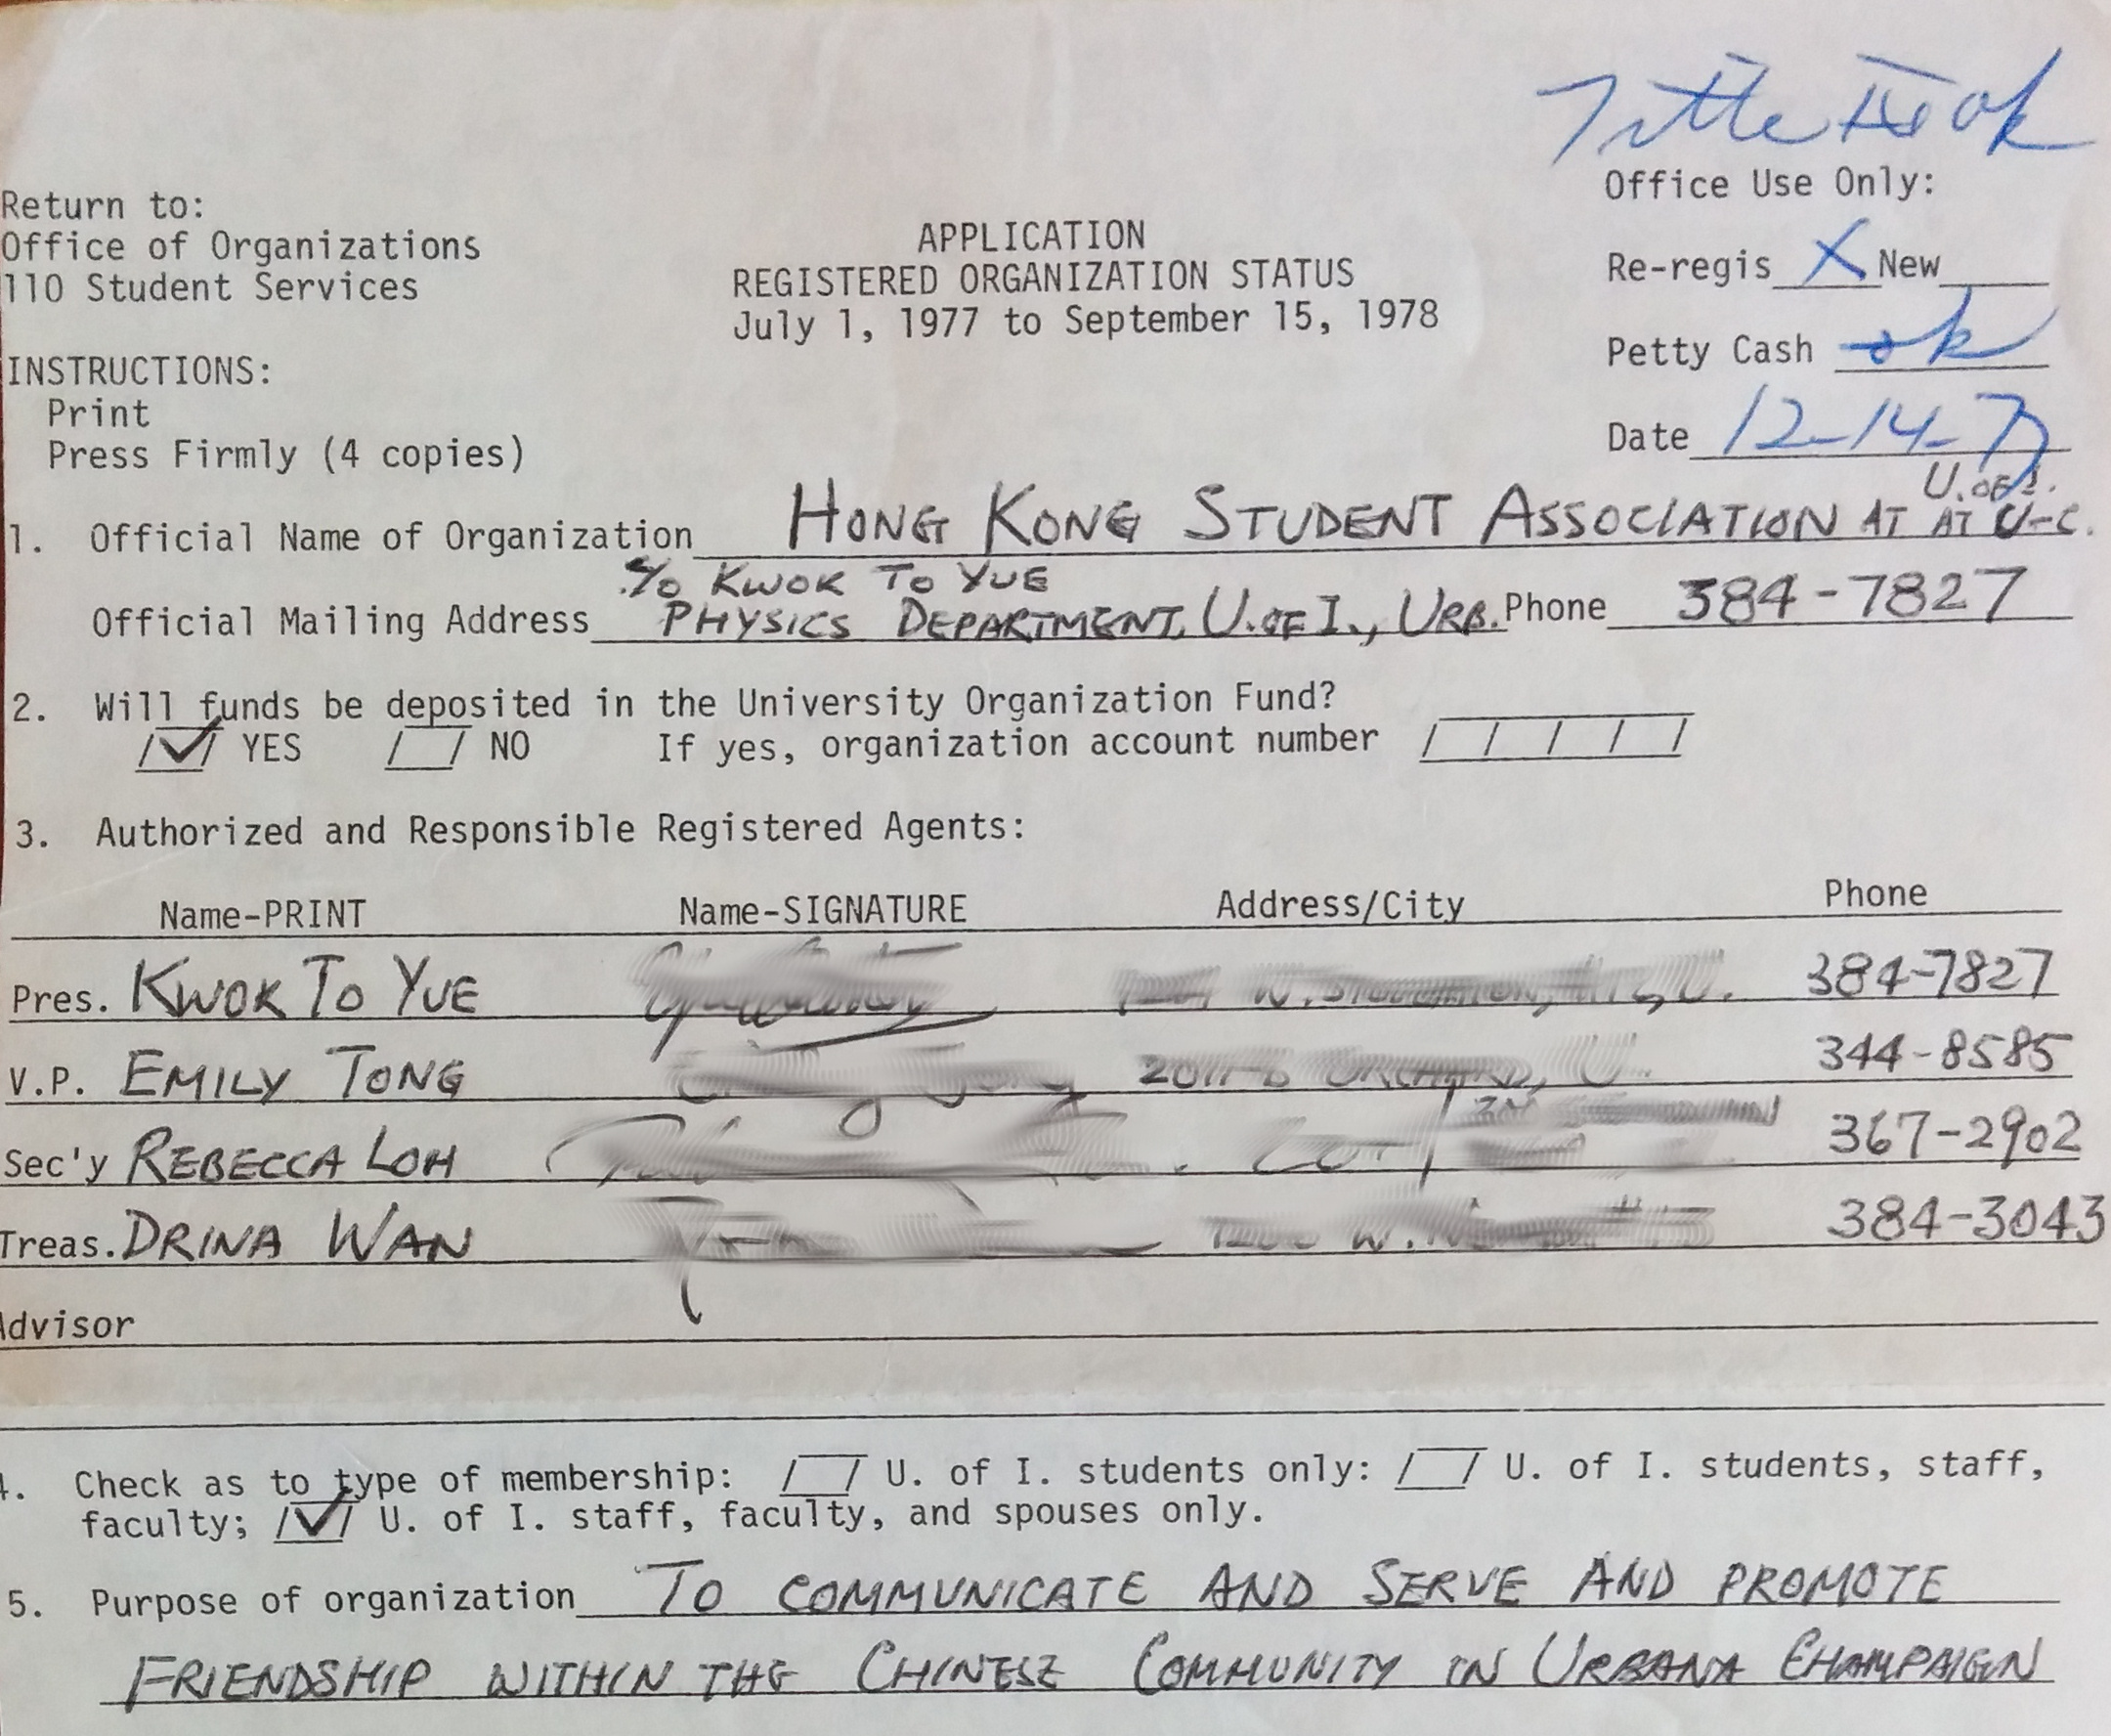 Title IX ok
Return to:
Office of Organizations
110 Student Services
APPLICATION
REGISTERED ORGANIZATION STATUS
July 1, 1977 to September 15, 1978
Office Use Only:
Re-regis X New
Petty Cash ok
Date 12-14-77
INSTRUCTIONS:
Print
Press Firmly (4 copies)
U. OF I.
1. Official Name of Organization HONG KONG STUDENT ASSOCIATION AT AT U-C.
c/o KWOK TO YUE
Official Mailing Address PHYSICS DEPARTMENT, U. OF I., URB. Phone 384-7827
2. Will funds be deposited in the University Organization Fund?
/✓/ YES / / NO If yes, organization account number / / / / /
3. Authorized and Responsible Registered Agents:
Name-PRINT Name-SIGNATURE Address/City Phone
Pres. KWOK TO YUE 384-7827
V.P. EMILY TONG 344-8585
Sec'y REBECCA LOH 367-2902
Treas. DRINA WAN 384-3043
Advisor
4. Check as to type of membership: / / U. of I. students only: / / U. of I. students, staff,
faculty; /✓/ U. of I. staff, faculty, and spouses only.
5. Purpose of organization TO COMMUNICATE AND SERVE AND PROMOTE
FRIENDSHIP WITHIN THE CHINESE COMMUNITY IN URBANA CHAMPAIGN